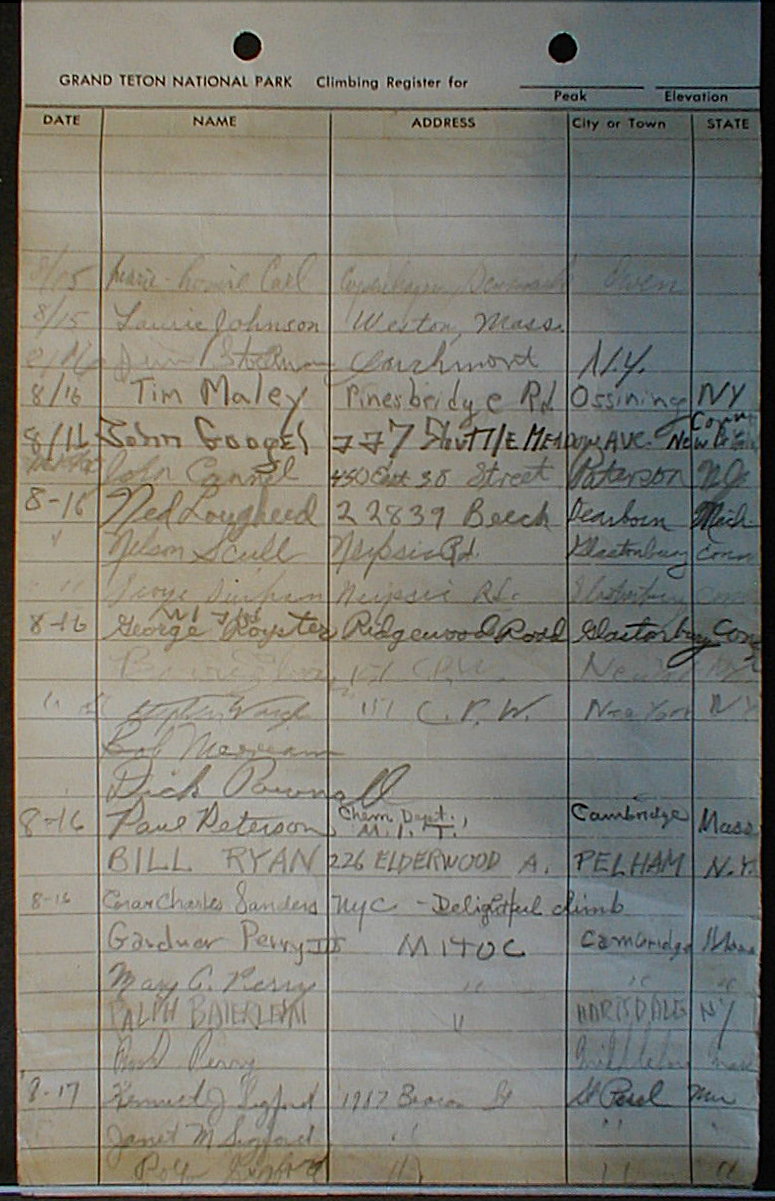 GRAND TETON NATIONAL PARK Climbing Register for
Peak Elevation
DATE NAME ADDRESS City or Town STATE
8/15 Marie-Louise Carl Copenhagen, Denmark
8/15 Laurie Johnson Weston, Mass.
Larchmont N.Y.
8/16 Tim Maley Pinesbridge Rd Ossining NY
Conn
8/16 John Googel 727 Shuttle Meadow Ave. New
John Cannel 450 East 38 Street Paterson NJ
8-16 Ned Lougheed 22839 Beech Dearborn Mich
" Nelson Scull Neipsic Rd. Glastonbury Conn
" " Neipsic Rd. Glastonbury Conn
8-16 George Royster Ridgewood Road Glastonbury Conn
151 C.P.W. New York
151 C.P.W. New York NY
Bob Merriam
Dick Pownall
8-16 Paul Peterson Chem. Dept., M.I.T. Cambridge Mass
BILL RYAN 226 ELDERWOOD A. PELHAM N.Y.
8-16 Charles Sanders NYC - Delightful climb
Gardner Perry III MITOC Cambridge Mass
Mary C. Perry " " "
RALPH BAIERLEIN " HARTSDALE NY
Perry
8-17 Kenneth J Sigford 1987 Beacon St St Paul Min
Janet M Sigford " " "
Sigford " " "